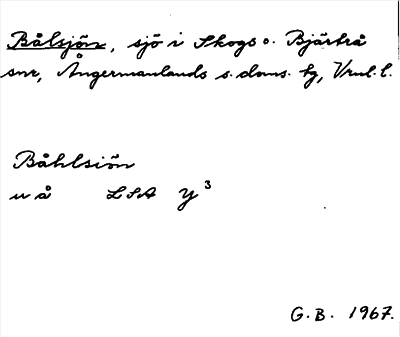 Bålsjön, sjö i Skogs o. Bjärtrå
snr, Ångermanlands s. doms. tg, Vrnl. l.
Båhlsiön
u å LSA Y 3
G.B. 1967.